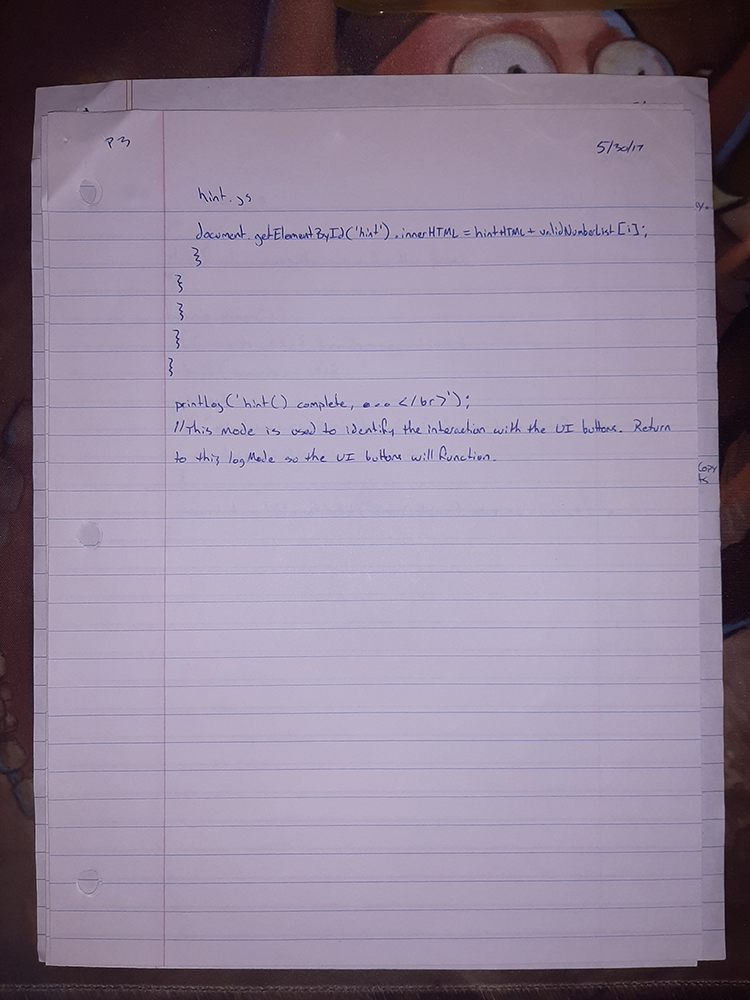 P3
5/30/17
hint.js
document.getElementById('hint').innerHTML = hintHTML + validNumberList[i];
}
}
}
}
}
printLog('hint() complete, ... </br>');
//This mode is used to identify the interaction with the UI buttons. Return
to this logMode so the UI buttons will function.
copy